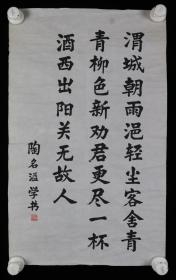 渭城朝雨浥轻尘客舍青
青柳色新劝君更尽一杯
酒西出阳关无故人
陶名溢学书